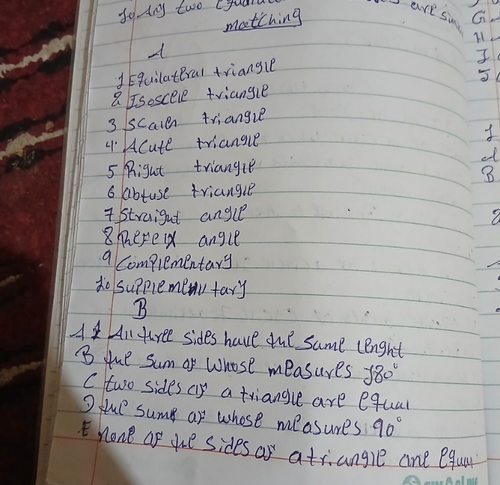 10 Any two
are sum
matching
A
1 Equilateral triangle
2 Isoscele triangle
3 Scalen triangle
4 Acute triangle
5 Right triangle
6 abtuse triangle
7 Straight angle
8 Reflex angle
9 Complementary
10 supplementary
B
A All three sides have the same lenght
B the sum of whose measures 180°
C two sides of a triangle are equal
D the sum of whose measures 90°
E none of the sides of a triangle are equal